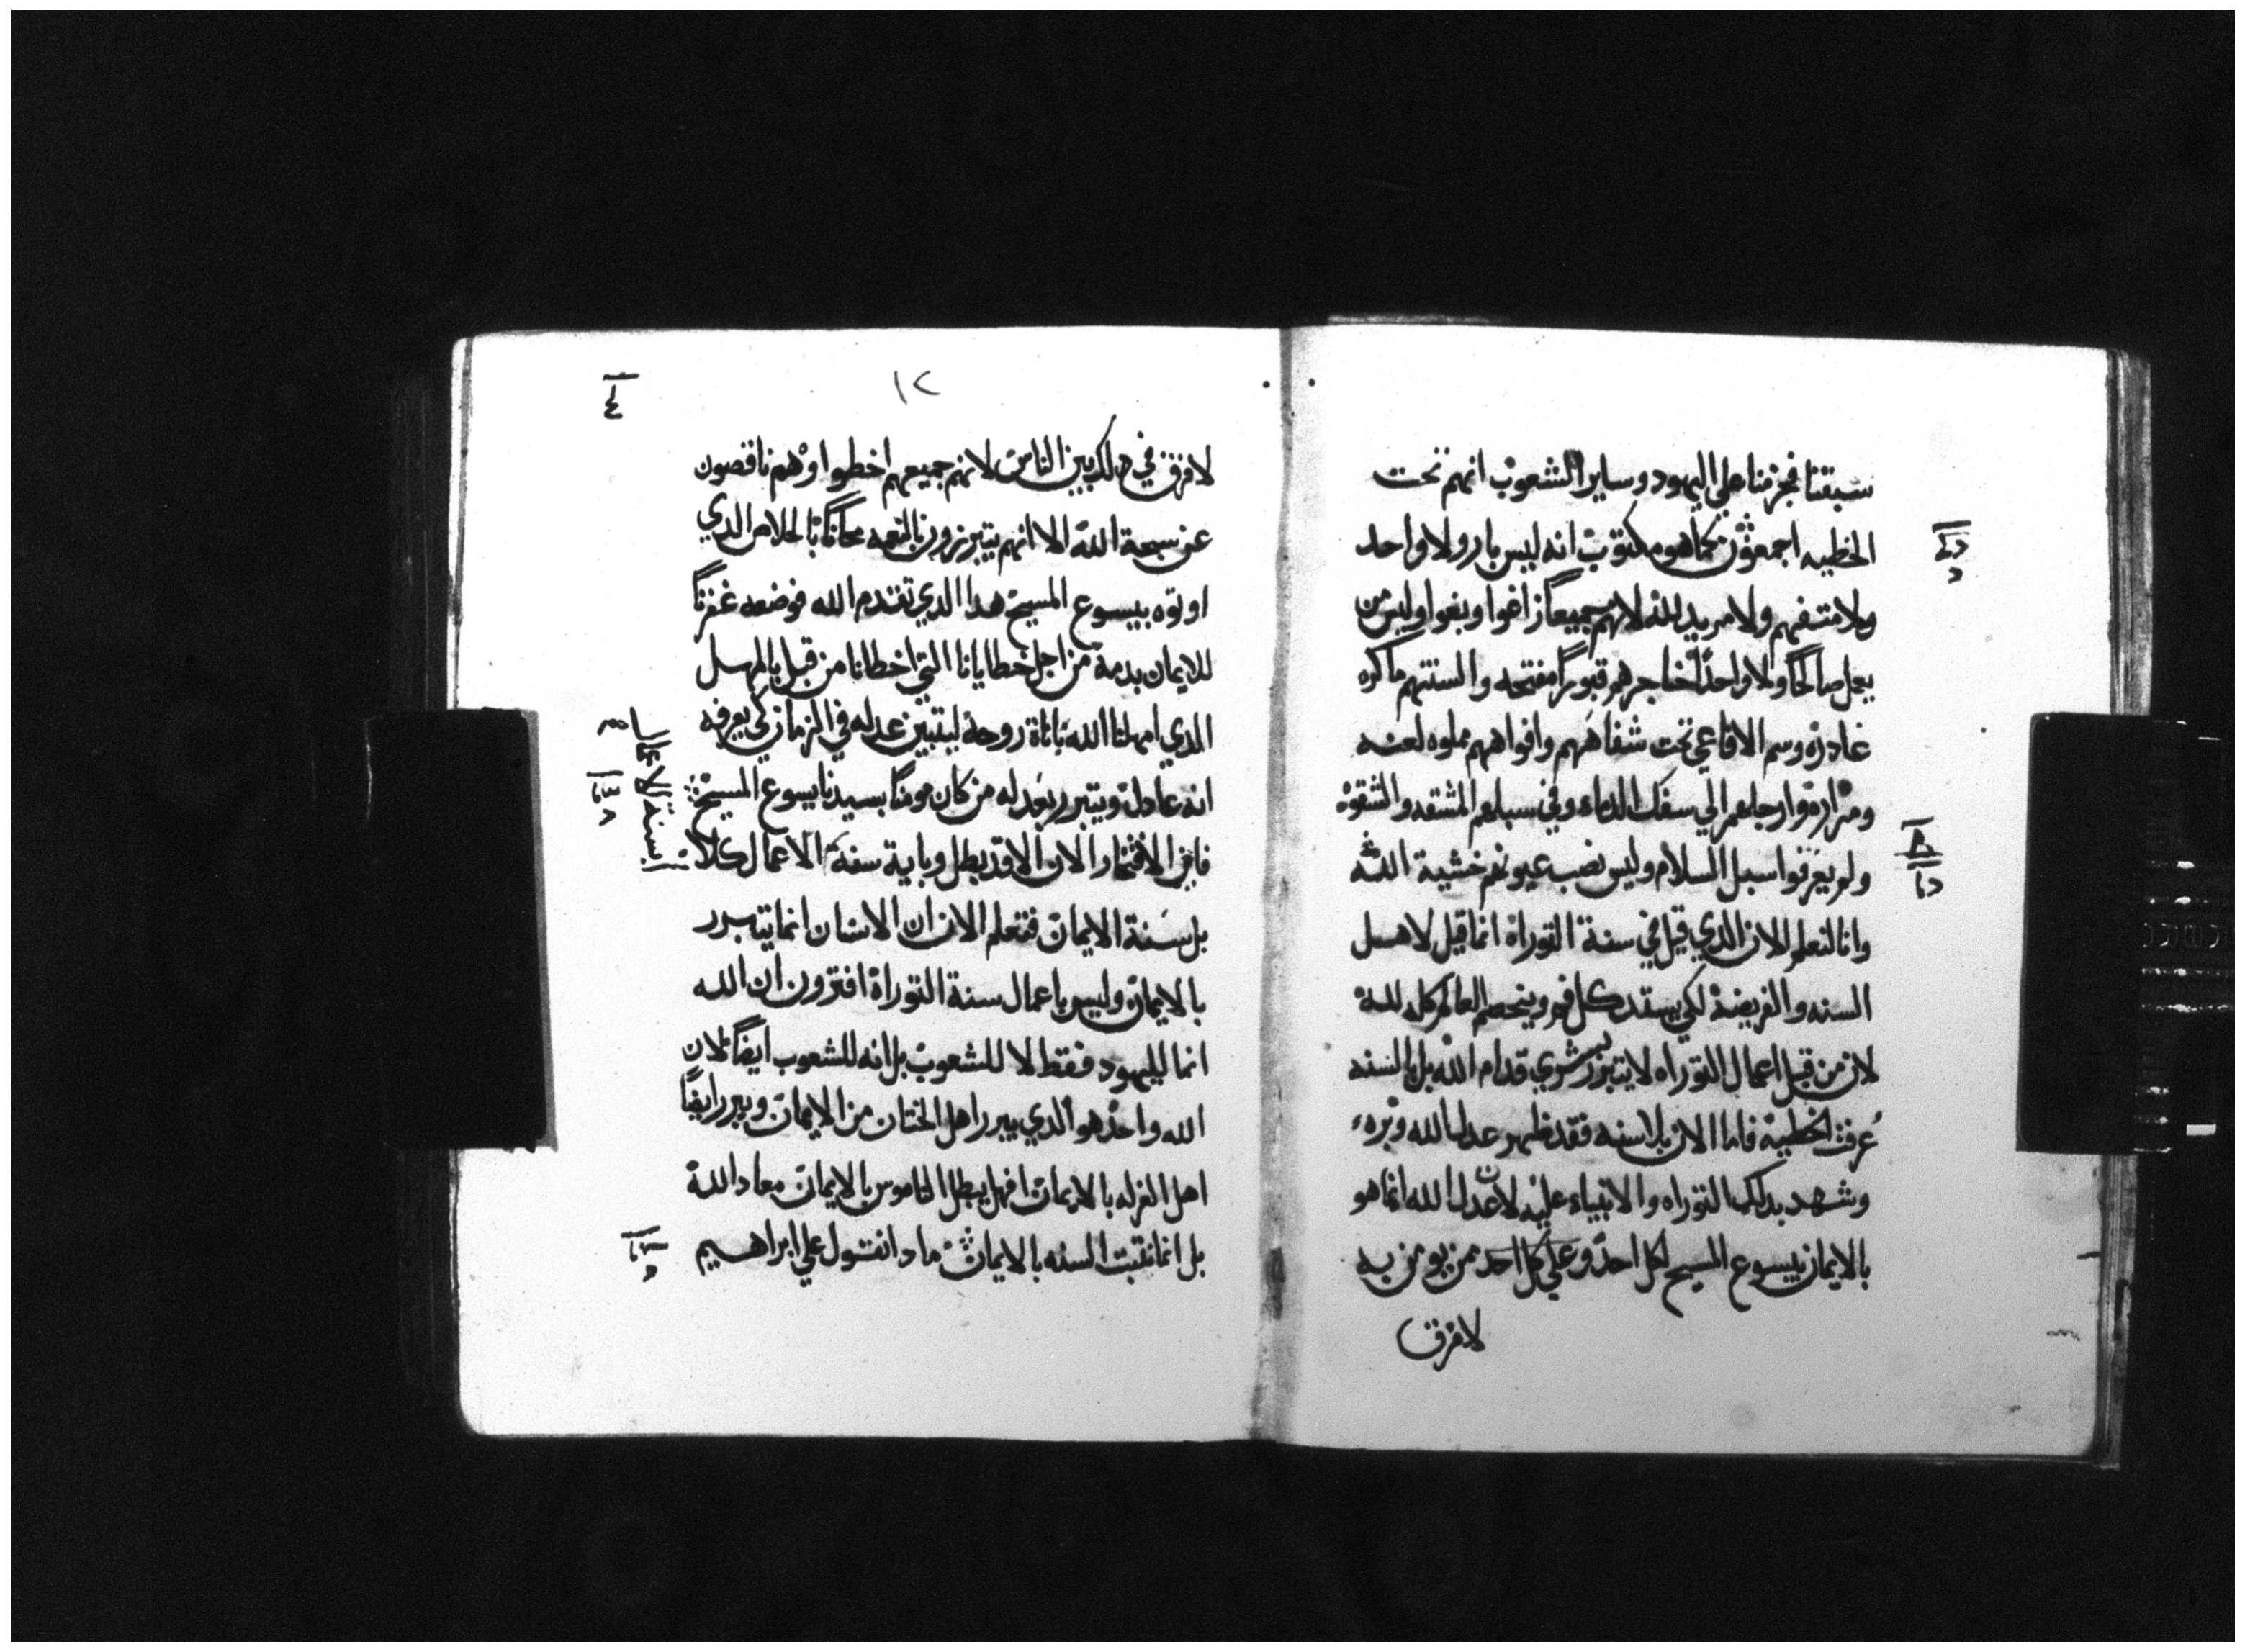 سبقنا فجزمنا علي اليهود وساير الشعوب انهم تحت
الخطيه اجمعون كما هو مكتوب انه ليس بار ولا واحد
ولا متفهم ولا مريد لله لانهم جميعاً زاغوا وبغوا وليس من
يعمل صالحاً ولا واحداً حناجرهم قبوراً مفتحه والسنتهم ماكره
غادره وسم الافاعي تحت شفاههم وافواههم مملوه لعنه
ومراره وارجلهم الي سفك الدماء وفي سبلهم المشقه والشقوه
ولم يعرفوا سبل السلام وليس نصب عيونهم خشية الله
وانا لنعلم الان الدي قيل في سنة التوراة انما قيل لاهل
السنه والفريضة لكي يستد كل فم ويخصم العالم كله لله
لان من قبل اعمال التوراه لا يتبرر بشري قدام الله بل بالسنه
عرفت الخطية فاما الان بلا سنه فقد ظهر عدل الله وبره
وشهد بدلك التوراه والانبياء عليه لان عدل الله انما هو
بالايمان بيسوع المسيح لكل احد وعلي كل احد ممن يومن به
لا فرق
١٢
لا فرق في دلك بين الناس لانهم جميعهم اخطوا وهم ناقصون
عن سبحة الله الا انهم يتبررون بالنعمه مجاناً بالخلاص الدي
اوتوه بيسوع المسيح هدا الدي تقدم الله فوضعه غفراناً
للايمان بدمه من اجل خطايانا التي اخطانا من قبل بالمهل
الدي امهلنا الله باناة روحه ليتبين عدله في الزمان لكي يعرفه
انه عادل ويتبرر بعدله من كان مومناً بسيدنا يسوع المسيح
فاين الافتخار الان الا قد بطل وباية سنة الاعمال كلا
بل سنة الايمان فنعلم الان ان الانسان انما يتبرر
بالايمان وليس باعمال سنة التوراة افترون ان الله
انما لليهود فقط لا للشعوب بل انه للشعوب ايضاً لان
الله واحد هو الدي يبرر اهل الختان من الايمان ويبرر ايضاً
اهل الغرله بالايمان افهل يبطل الناموس بالايمان معاد الله
بل انما نثبت السنه بالايمان مادا نقول علي ابراهيم